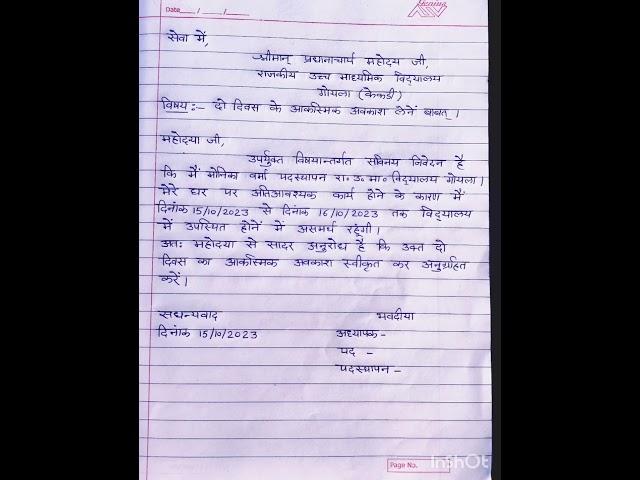 Date___/___/___
सेवा में,
श्रीमान् प्रधानाचार्य महोदय जी,
राजकीय उच्च माध्यमिक विद्यालय
गोयला (केकडी)
विषय :- दो दिवस के आकस्मिक अवकाश लेनें बाबत् ।
महोदया जी,
उपर्युक्त विषयान्तर्गत सविनय निवेदन है
कि मैं मोनिका वर्मा पदस्थापन रा. उ. मा. विद्यालय गोयला ।
मेरे घर पर अतिआवश्यक कार्य होने के कारण मैं
दिनांक 15/10/2023 से दिनांक 16/10/2023 तक विद्यालय
में उपस्थित होनें में असमर्थ रहूंगी ।
अतः महोदया से सादर अनुरोध है कि उक्त दो
दिवस का आकस्मिक अवकाश स्वीकृत कर अनुग्रहित
करें ।
सधन्यवाद भवदीया
दिनांक 15/10/2023 अध्यापक -
पद -
पदस्थापन -
Page No.
InShOt